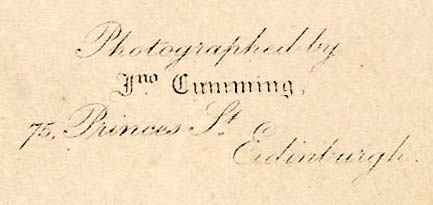 Photographed by
Jno Cumming,
75, Princes St
Edinburgh.